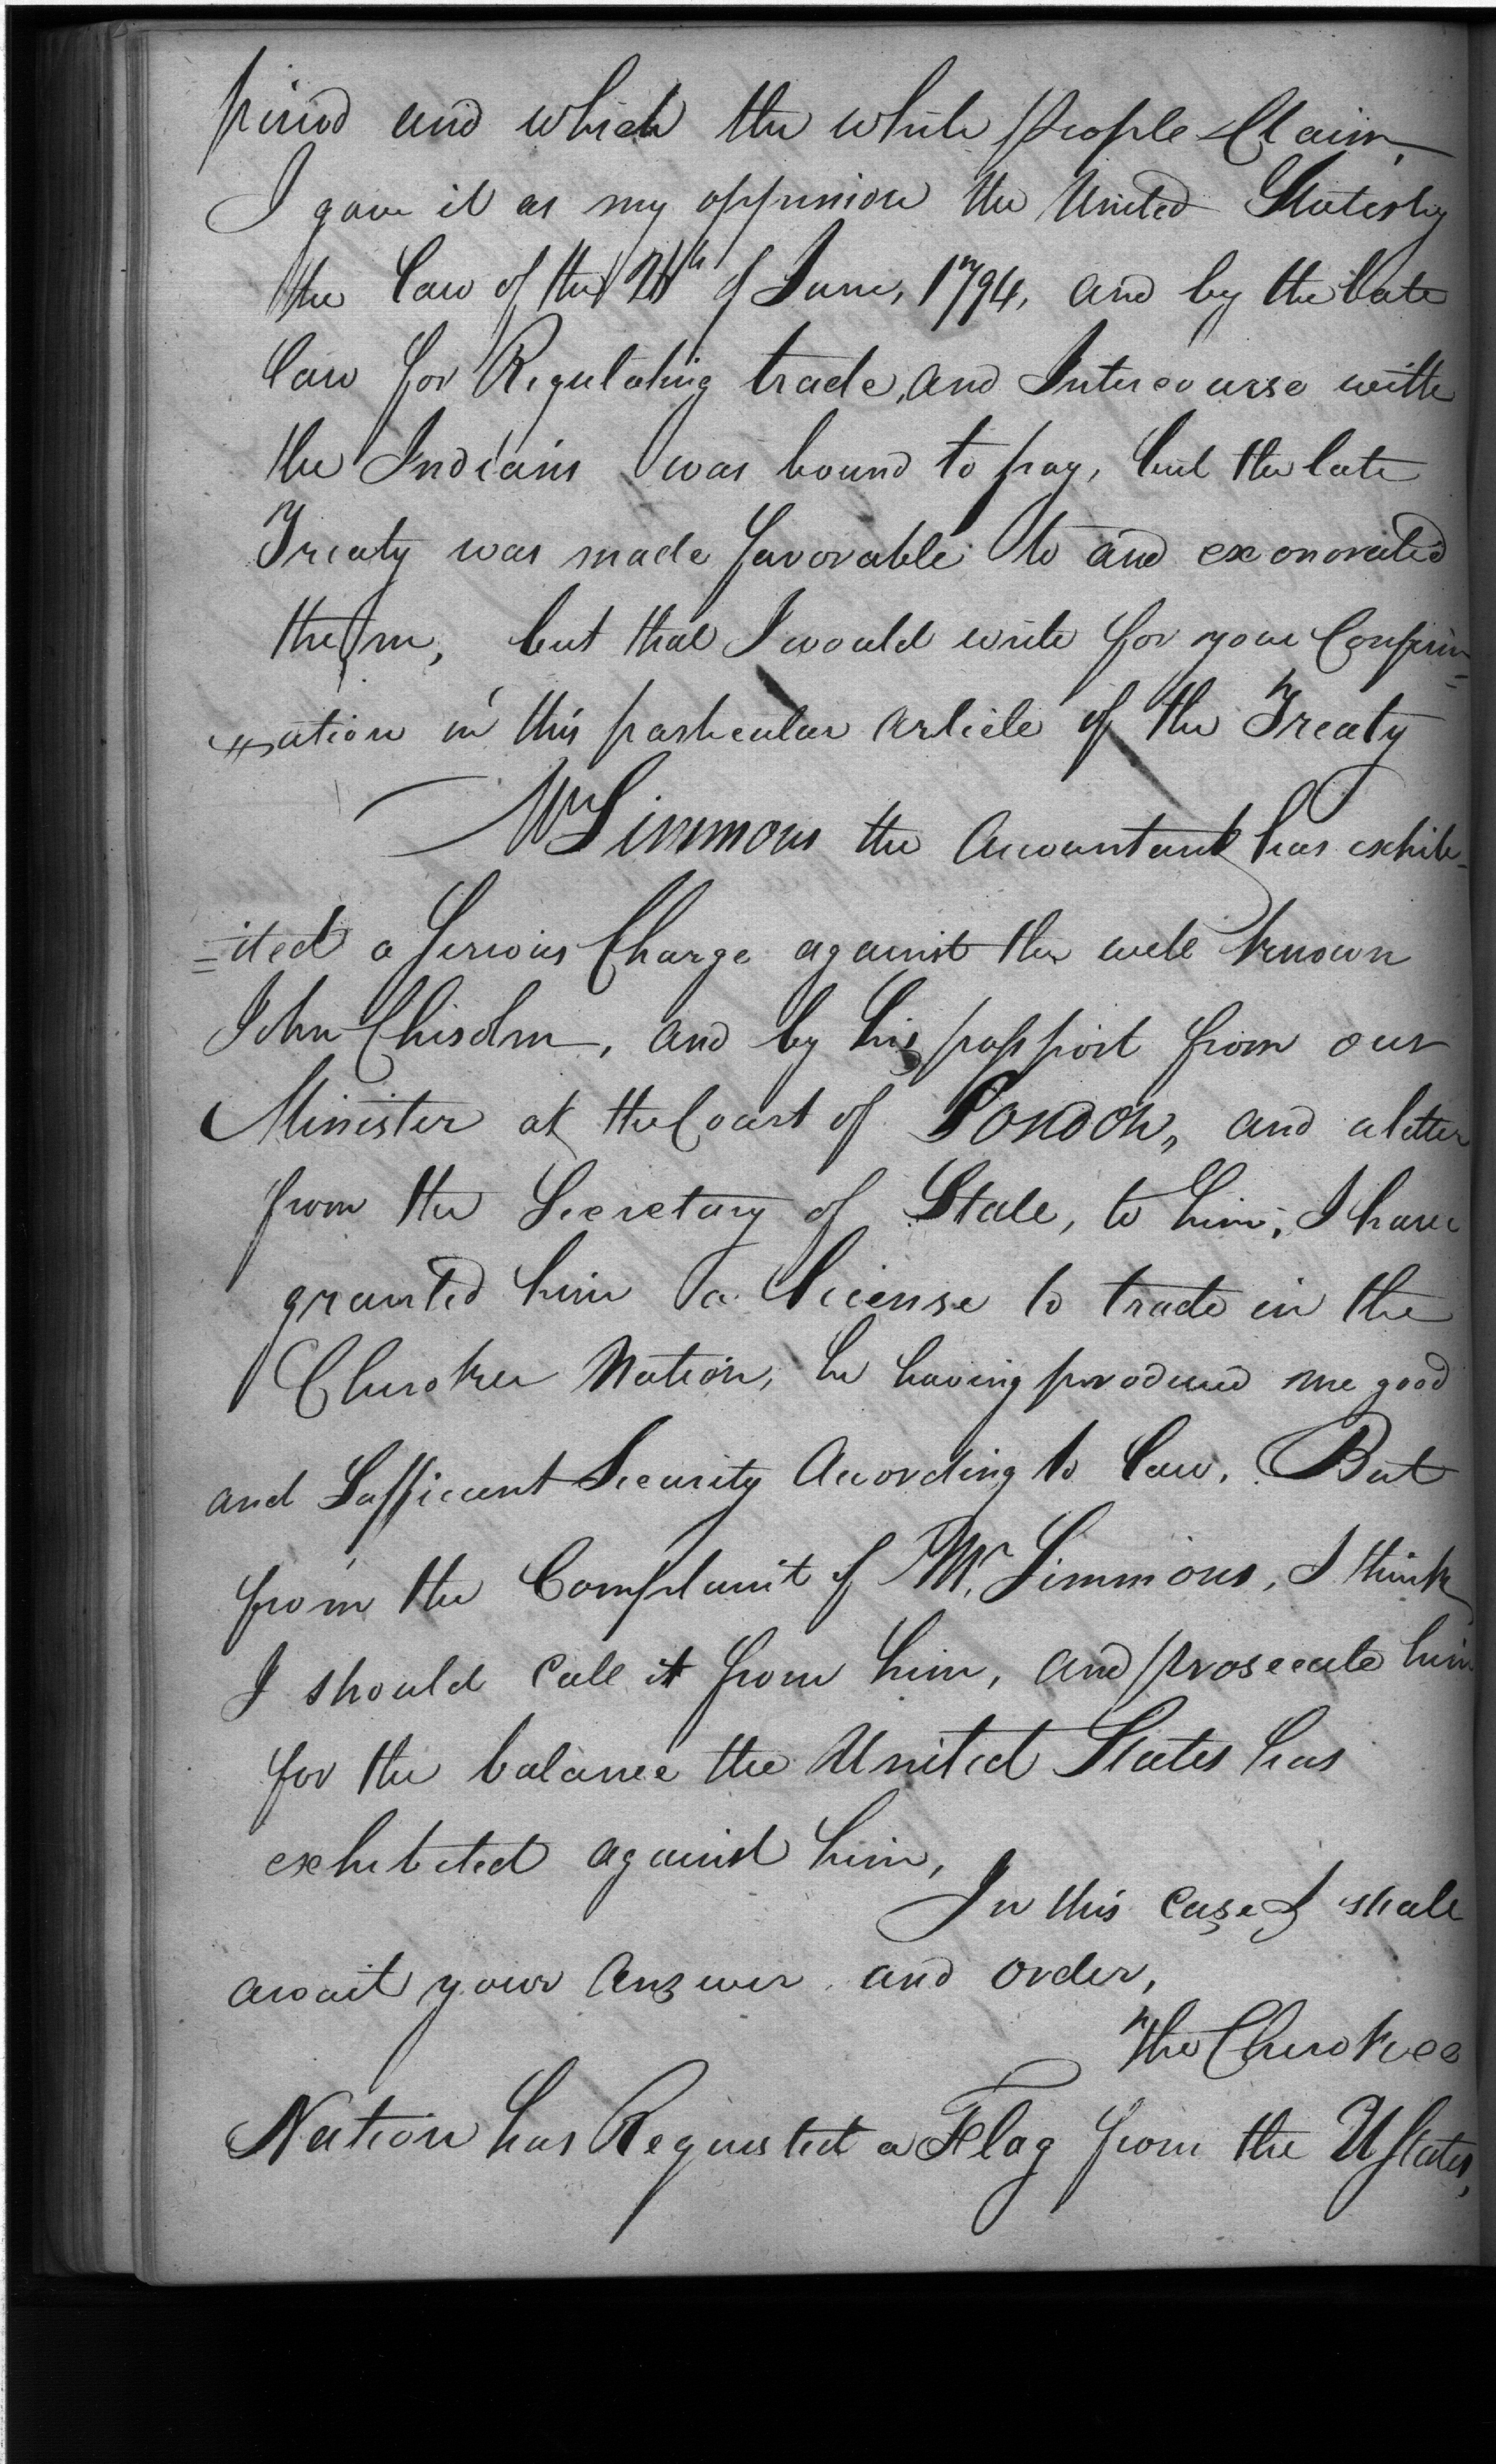 period and which the white people Claim,
I gave it as my oppinion the United States by
the Law of the of June, 1794, and by the late
law for Regulating trade, and Intercourse with
the Indians was bound to pay, but the late
Treaty was made favorable to and exonorated
them, but that I would write for your Confirm=
=ation in this particular article of the Treaty
Mr Simmons the Accountant has exhib=
=ited a Serious Charge against the well known
John Chisolm, and by his passport from our
Minister at the Court of London, and a letter
from the Secretary of State, to him, I have
granted him a License to trade in the
Cherokee Nation, he having produced me good
and Sufficient Security According to Law. But
from the Complaint of Mr. Simmons, I think
I should call it from him, and prosecute him
for the balance the United States has
exhibited against him,
In this case I shall
await your Answer and order,
The Cherokee
Nation has Requested a Flag from the U States,